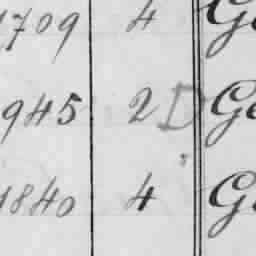 1709 4 Ge
945 2 D Ge
1840 4 Ge